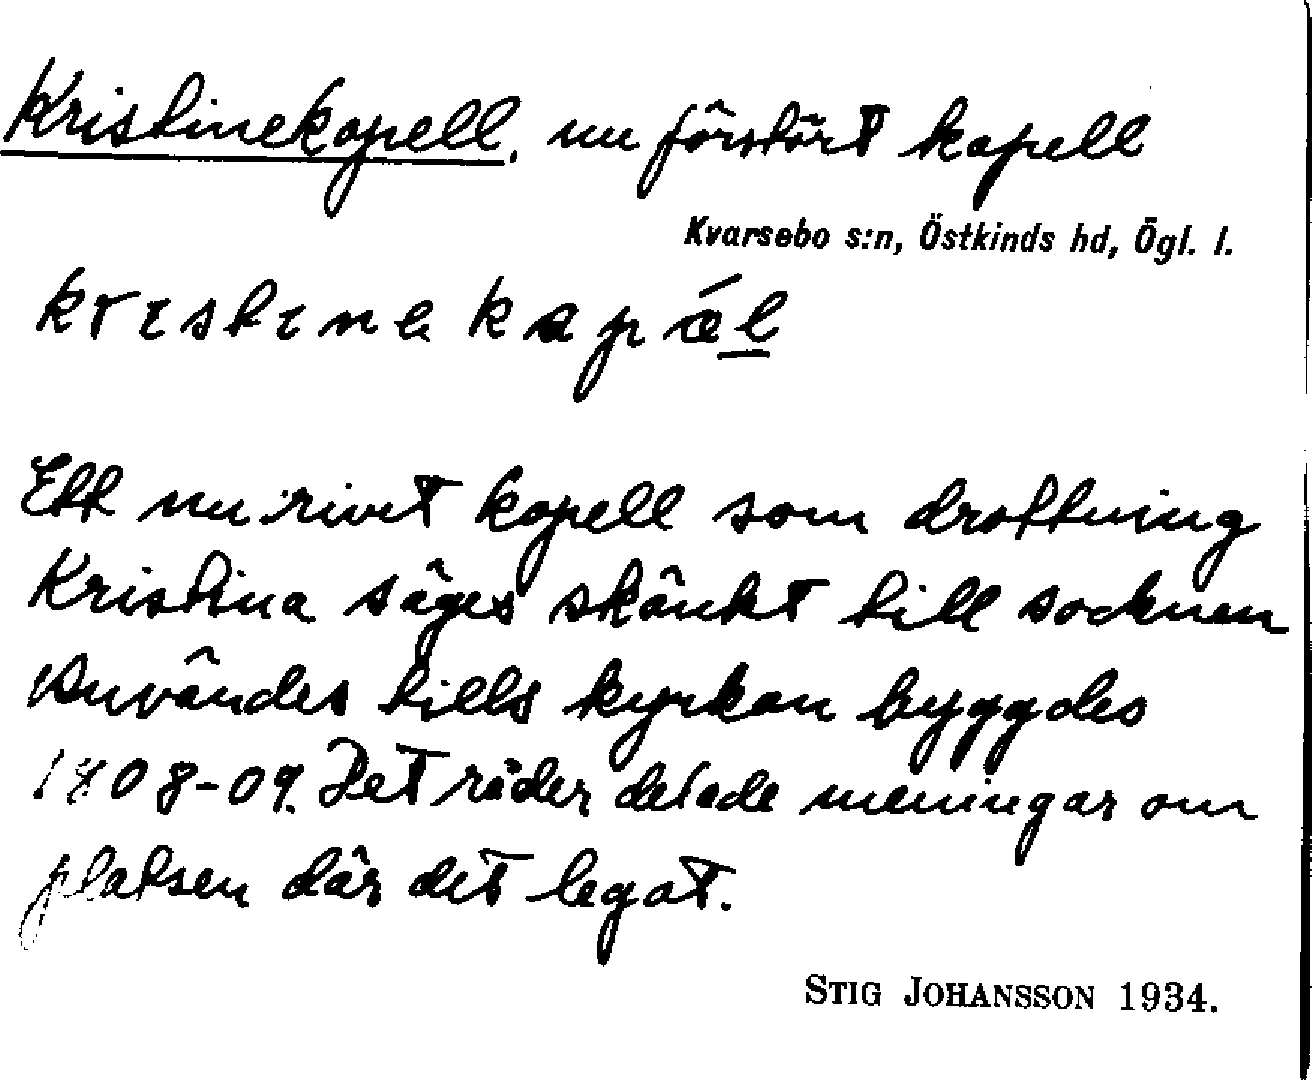 Kristinekapell, nu förstört kapell
Kvarsebo s:n, Östkinds hd, Ögl. l.
kristine kapæ̂l
Ett nu rivet kapell som drottning
Kristina säges skänkt till socknen
Användes tills kyrkan byggdes
1808-09. Det råder delade meningar om
platsen där det legat.
STIG JOHANSSON 1934.